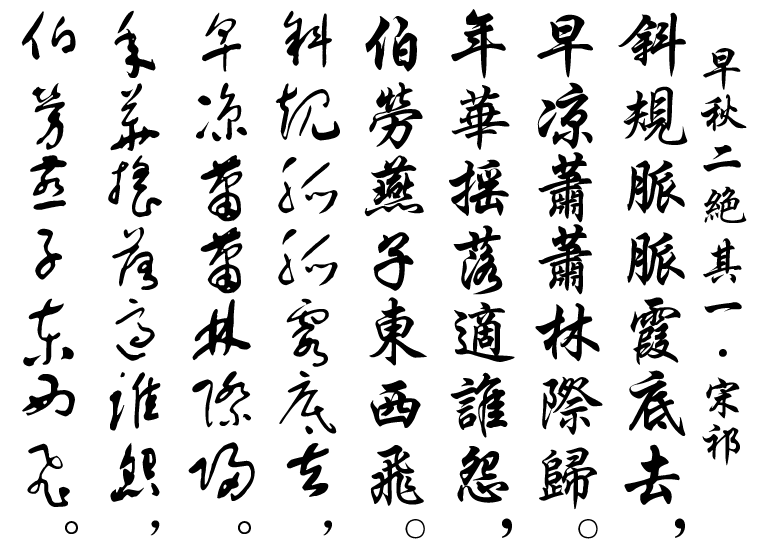 早秋二絶其一·宋祁
斜規脈脈霞底去，
早凉蕭蕭林際歸。
年華摇落適誰怨，
伯勞燕子東西飛。
斜規脈脈霞底去，
早凉蕭蕭林際歸。
年華摇落適誰怨，
伯勞燕子東西飛。